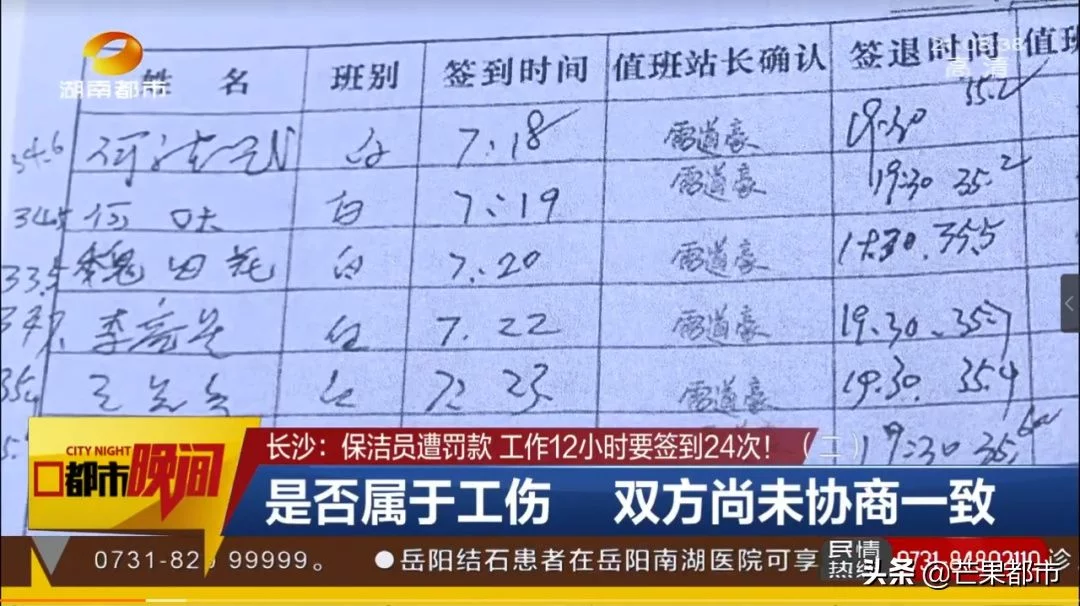 湖南都市
21:18:38
高清
姓 名 班别 签到时间 值班站长确认 签退时间 值班
34.6 白 7:18 雷道豪 19:30 35.2
34.5 何 白 7:19 雷道豪 19:30 35.2
33.5 魏田花 白 7.20 雷道豪 35.5
李 白 7.22 雷道豪 19.30. 35.7
35.4 王 白 7: 23 雷道豪 19.30. 35.4
19:30 35.
CITY NIGHT
都市晚间
长沙：保洁员遭罚款 工作12小时要签到24次！（二）
是否属于工伤 双方尚未协商一致
99999。 ●岳阳结石患者在岳阳南湖医院可享
民情热线 0731-84802110 诊
头条 @芒果都市